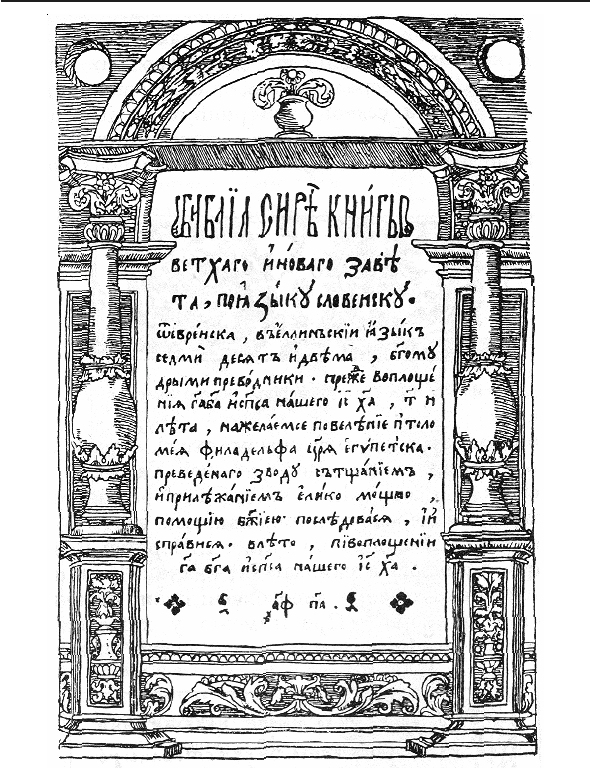 БИБЛЇА СИРѢ КНИ́ГЫ
ВЕТХАГО И҆ НО́ВАГО ЗАВѢ
ТА, ПОꙖ҆ЗЫ́КꙊ СЛОВЕНСКꙊ.
Ѿ ЕВРЕ́ЙСКА, ВЪ Е́ЛЛИНЬСКІИ Ꙗ҆ЗЫ́КЪ
СЕДМИ́ ДЕСЯТЪ И҆ ДВѢМА, БГ҃ОМꙊ
ДРЫМИ ПРЕВО́ДНИКИ. ПРЕ́ЖЕ ВОПЛОЩЕ́
НЇЯ ГА҃ БГ҃А И҆ СП҃СА НА́ШЕГО І҆С Х҃А, Т҃ И
ЛѢТА, НА ЖЕЛАЕМОЕ ПОВЕЛѢ́НЇЕ ПТОЛО
МЕ́Я ФИЛАДЕЛЬФА ЦР҃Я Е҆ГѴ́ПЕТСКА.
ПРЕВЕДЕ́НАГО ЗВОДУ СЪ ТЩА́НЇЕМЪ,
И҆ ПРИЛѢЖА́НЇЕМЪ Е҆ЛИ́КО МО́ЩНО,
ПОМОЩЇЮ БЖ҃ІЕЮ ПОСЛѢ́ДОВАСЯ, И҆
СПРА́ВИСЯ. В ЛѢТО, ПО ВОПЛОЩЕ́НЇИ
ГА҃ БГ҃А И҆ СП҃СА НА́ШЕГО І҆С Х҃А.
҂АФ ПА.